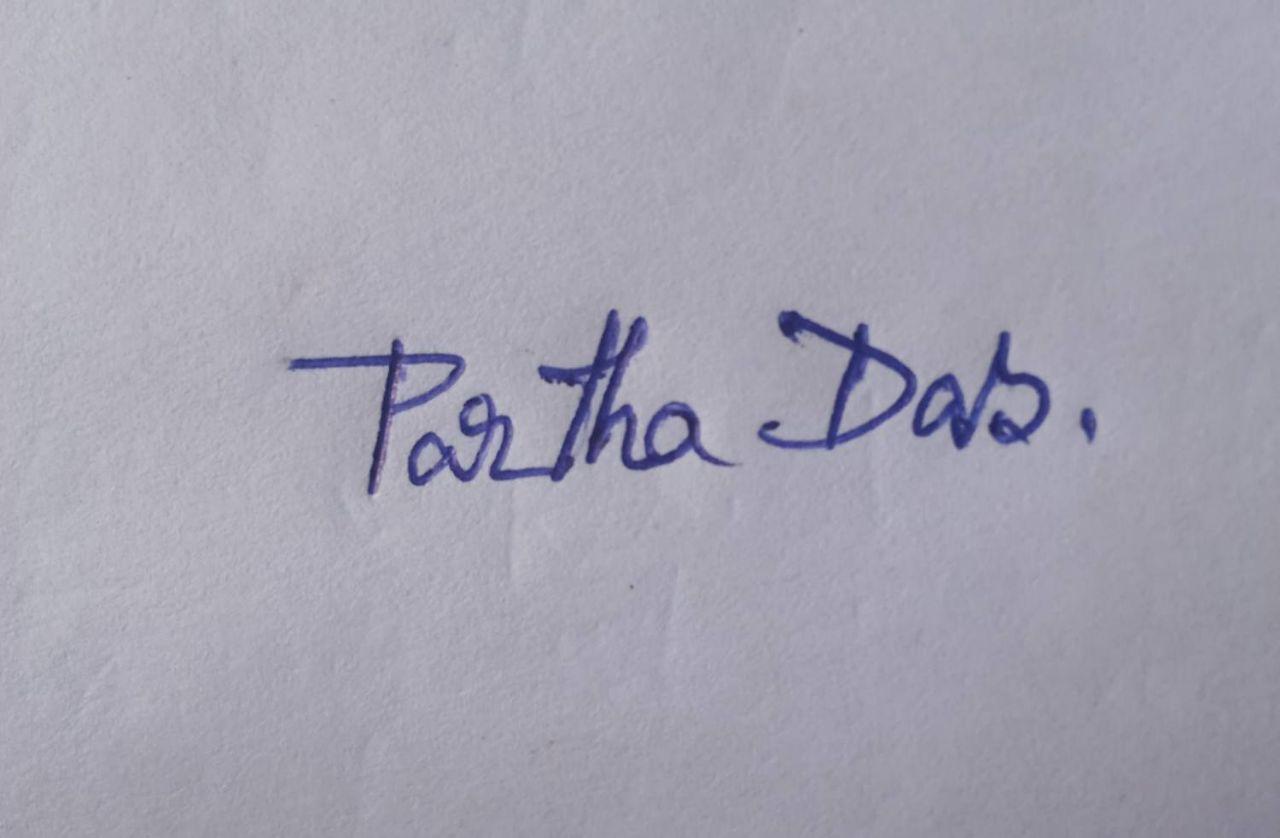 Partha Das.